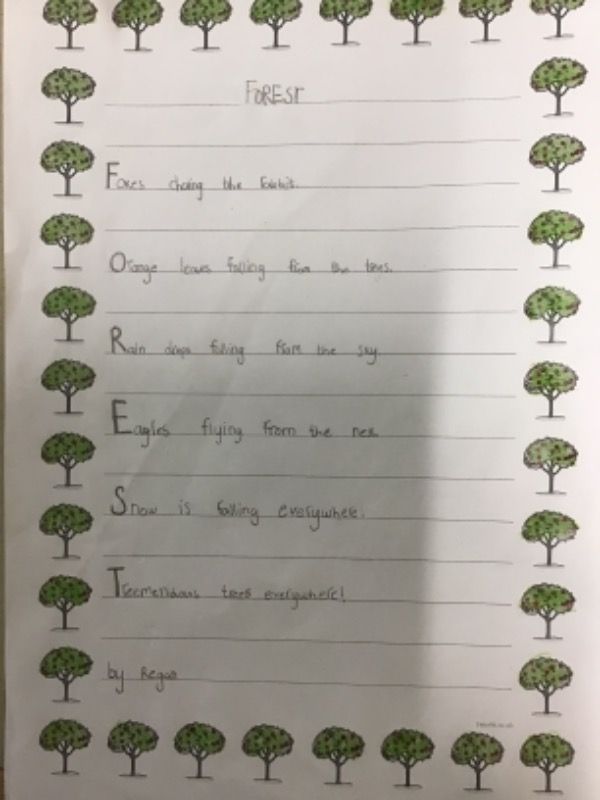 FOREST
Foxes chasing the
Orange leaves falling from the trees.
Rain drops falling from the sky
Eagles flying from the nest
Snow is falling everywhere.
Treemendous trees everywhere!
by Regan